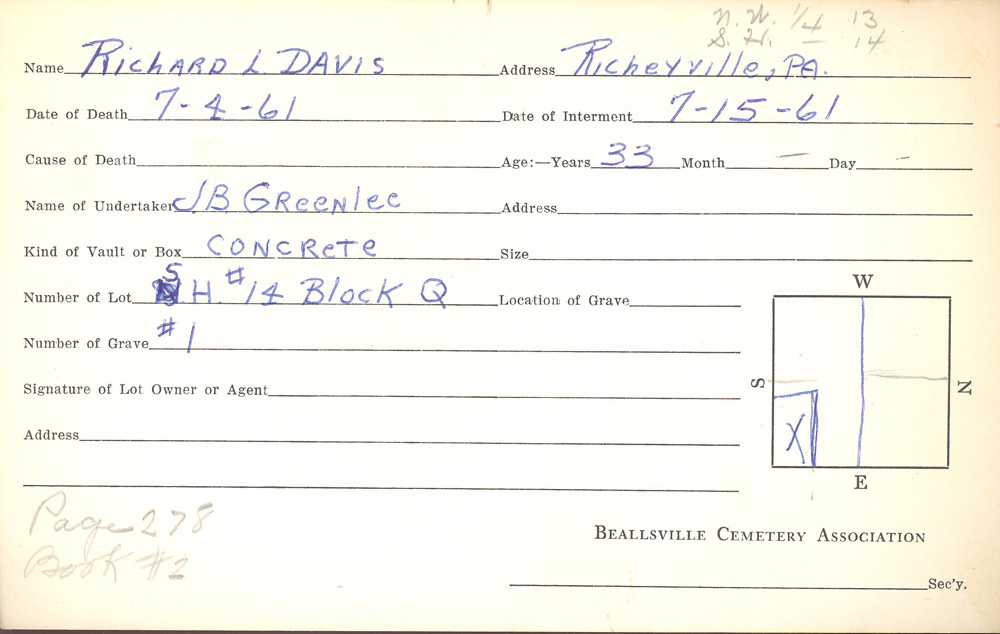 N.W. 1/4 13
S.H. — 14
Name Richard L Davis Address Richeyville, PA.
Date of Death 7-4-61 Date of Interment 7-15-61
Cause of Death Age:—Years 33 Month — Day —
Name of Undertaker JB Greenlee Address
Kind of Vault or Box Concrete Size
Number of Lot S H #14 Block Q Location of Grave
Number of Grave #1
Signature of Lot Owner or Agent
Address
W
S
N
X
E
Page 278
Book #2
Beallsville Cemetery Association
Sec'y.